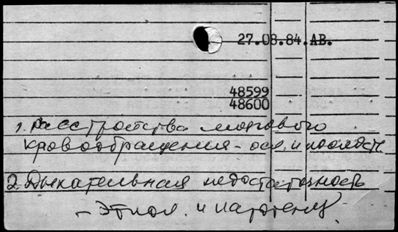 27.08.84.АВ.
48599
48600
1. Расстройства мозгового
кровообращения - осл. и последст
2. Дыхательная недостаточность
- Этиол. и патогенез.